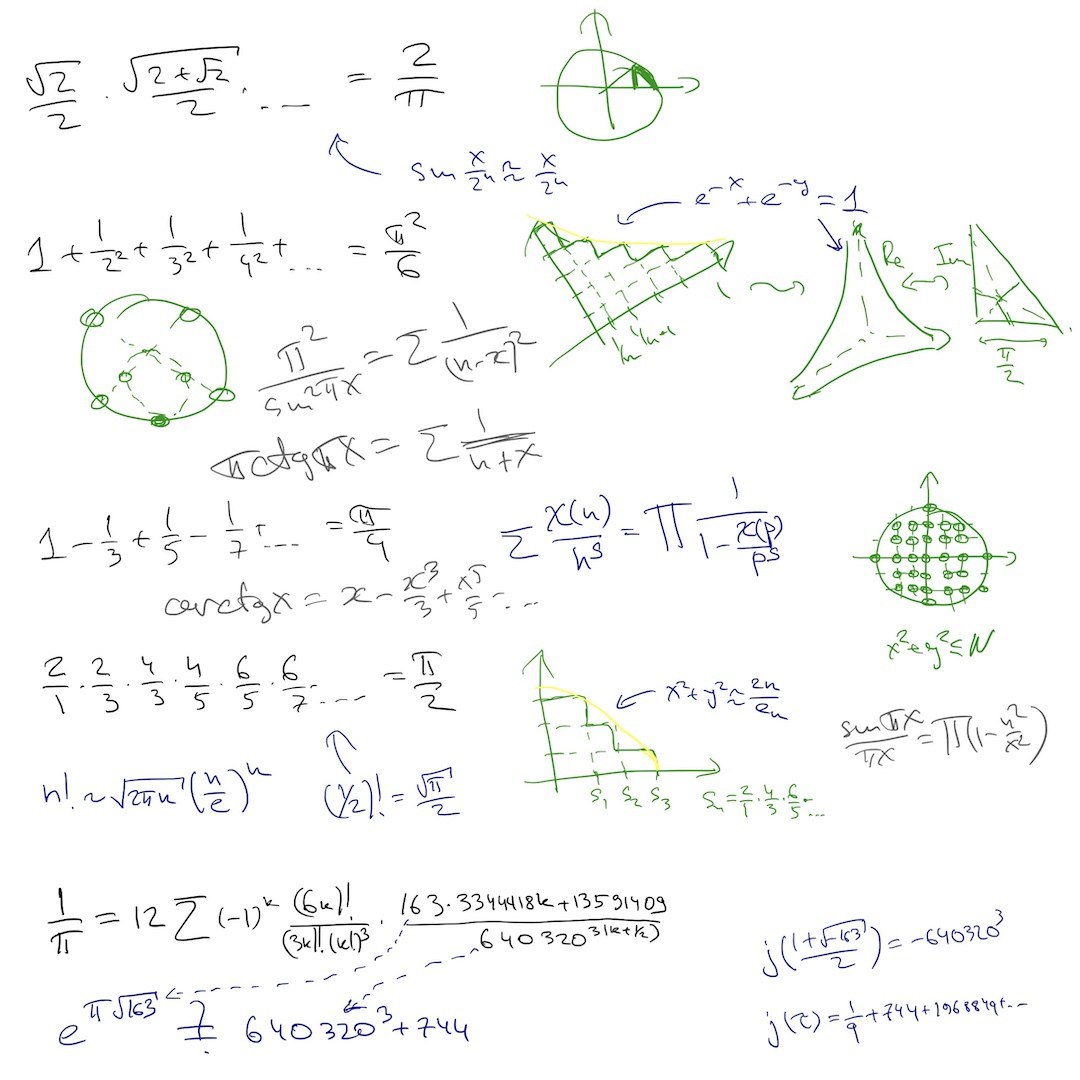 √2/2 · √(2+√2)/2 · ... = 2/π
sin x/2ⁿ ≈ x/2ⁿ
e⁻ˣ + e⁻ʸ = 1
1 + 1/2² + 1/3² + 1/4² + ... = π²/6
Re Im
1/n 1/n+1
π/2
π²/sin²πx = Σ 1/(n-x)²
π ctg πx = Σ 1/n+x
1 - 1/3 + 1/5 - 1/7 + ... = π/4
Σ χ(n)/nˢ = Π 1/(1 - χ(p)/pˢ)
arctg x = x - x³/3 + x⁵/5 - ...
x² + y² ≤ N
2/1 · 2/3 · 4/3 · 4/5 · 6/5 · 6/7 · ... = π/2
x² + y² ≈ 2n/eₙ
sin πx/πx = Π(1 - n²/x²)
n! ~ √2πn (n/e)ⁿ
(1/2)! = √π/2
S₁ S₂ S₃
Sₙ = 2/1 · 4/3 · 6/5 · ...
1/π = 12 Σ (-1)ᵏ (6k)!/(3k)!·(k!)³ · (163·3344418k + 13591409)/640320^(3(k+1/2))
j((1+√-163)/2) = -640320³
e^(π√163) ≟ 640320³ + 744
j(τ) = 1/q + 744 + 196884q + ...